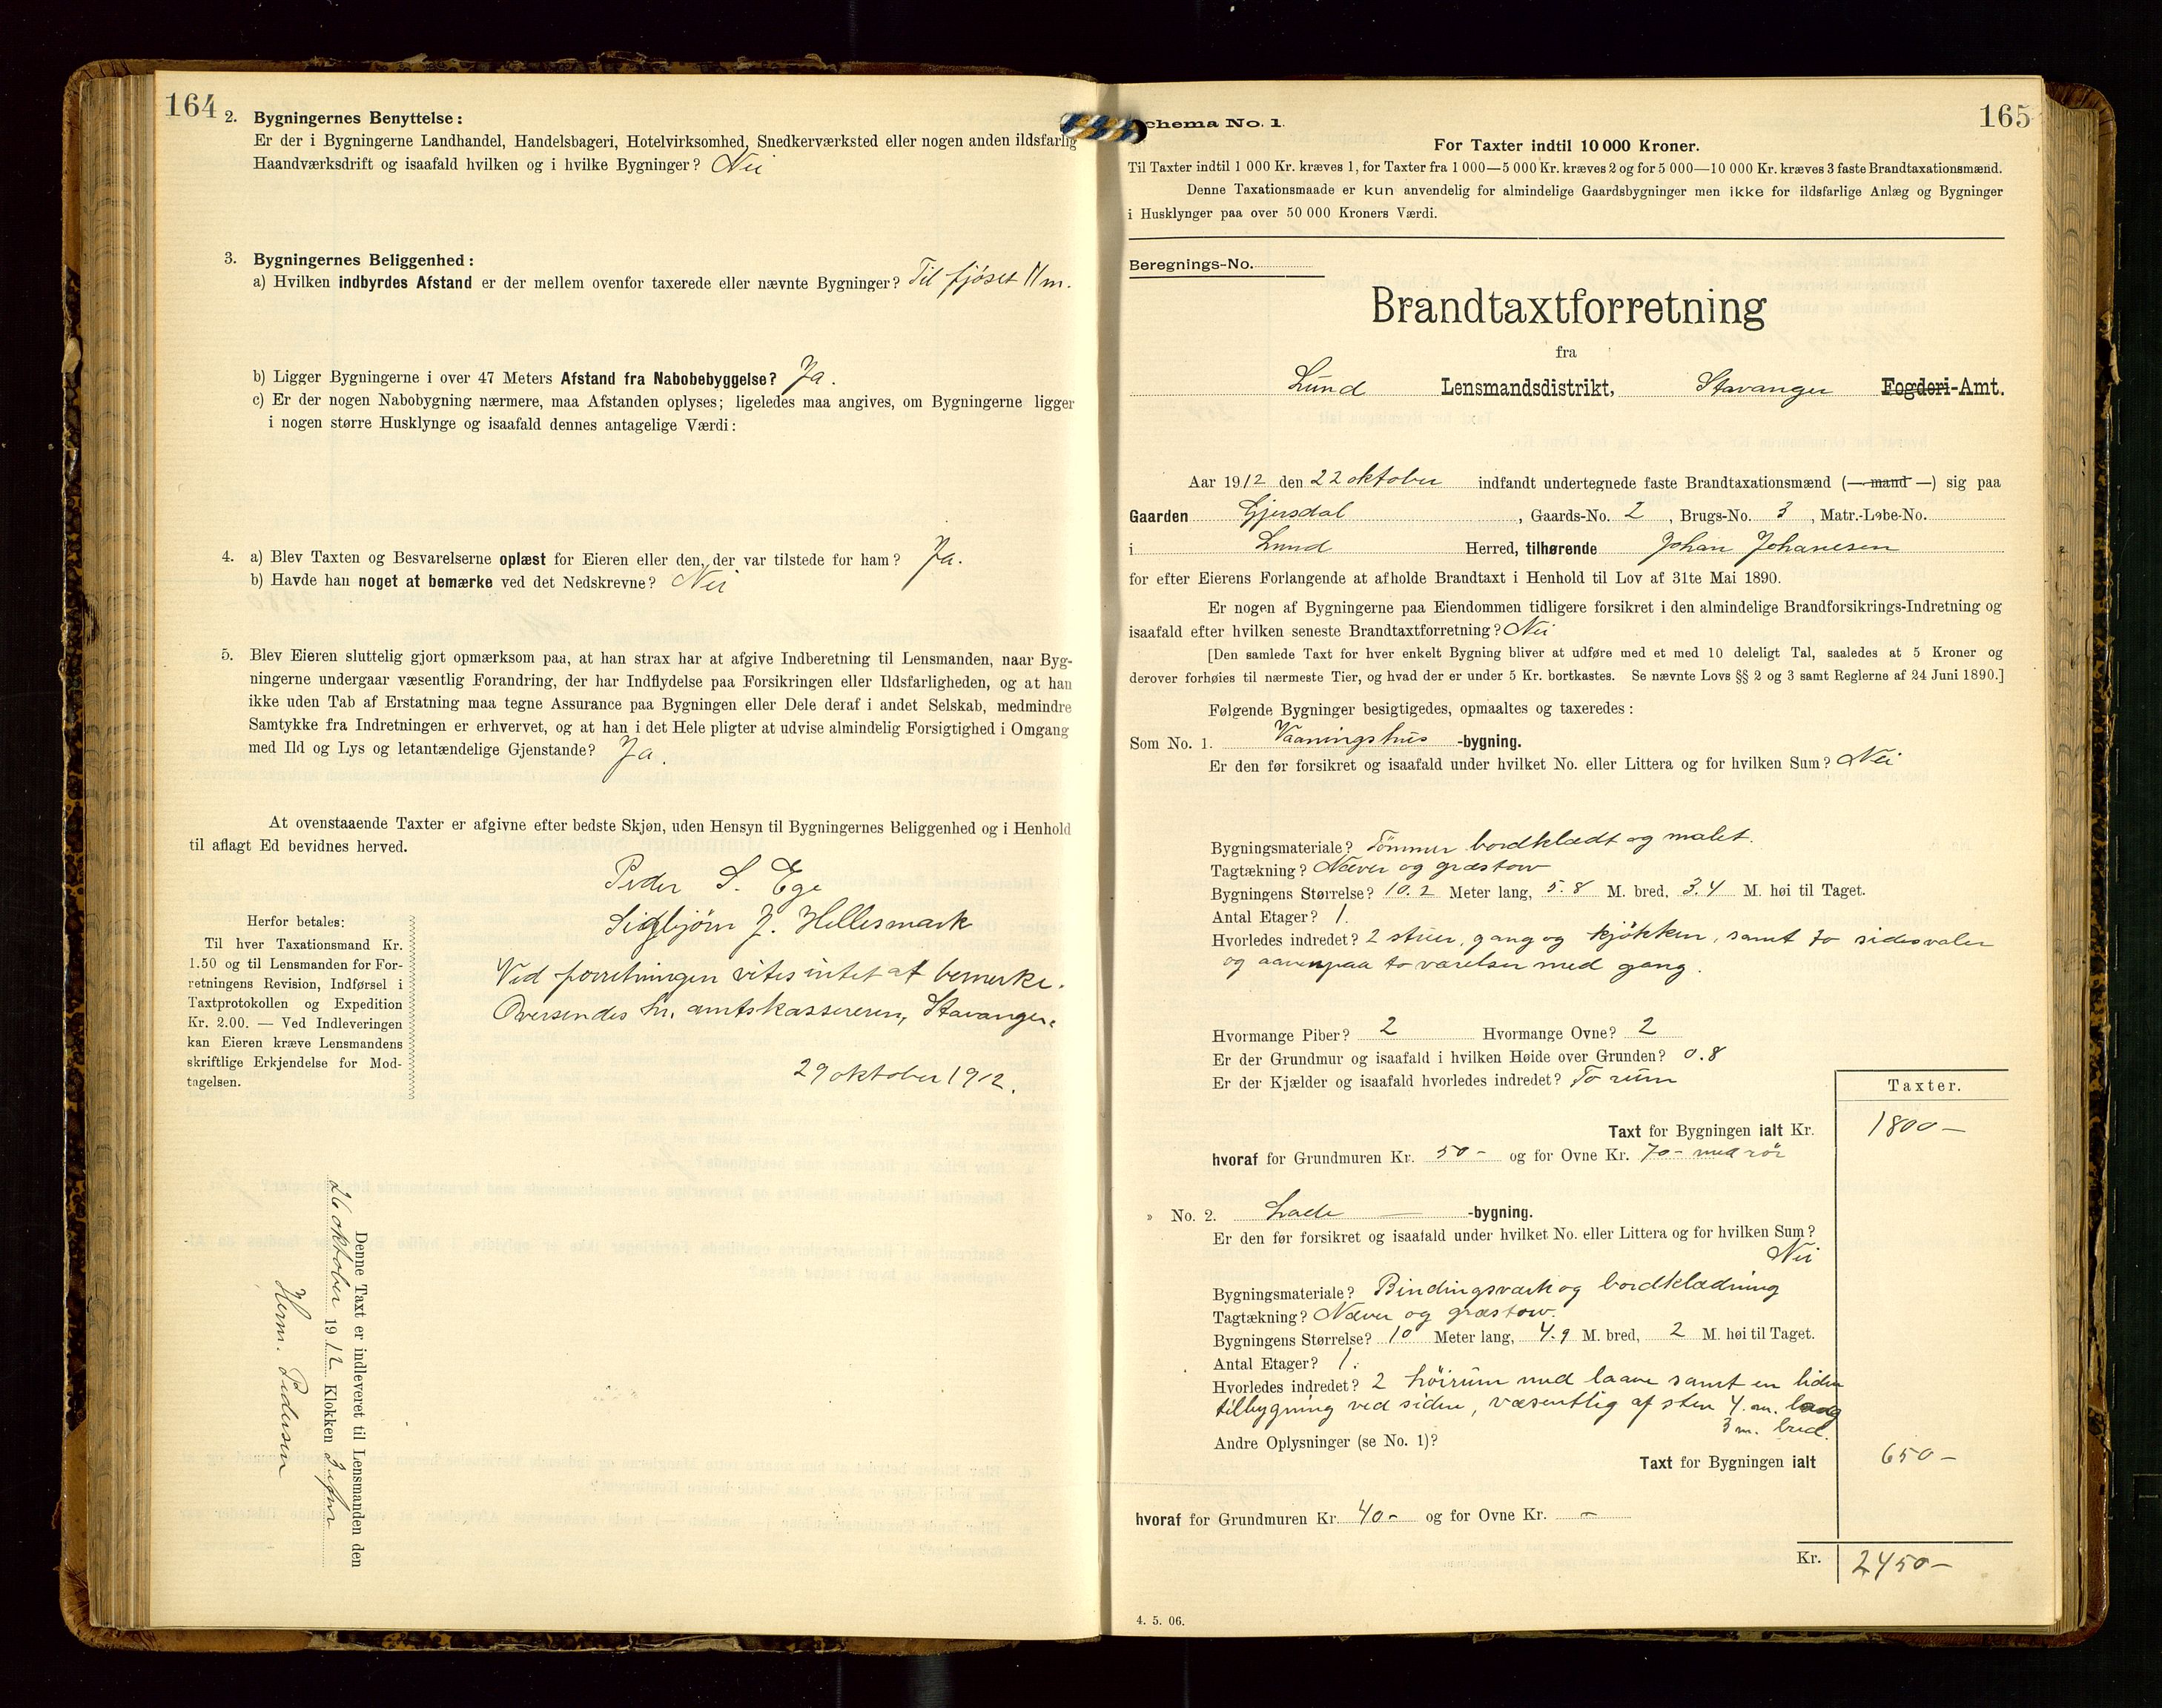 164
2. Bygningernes Benyttelse:
Er der i Bygningerne Landhandel, Handelsbageri, Hotelvirksomhed, Snedkerværksted eller nogen anden ildsfarlig
Haandværksdrift og isaafald hvilken og i hvilke Bygninger? Nei
3. Bygningernes Beliggenhed:
a) Hvilken indbyrdes Afstand er der mellem ovenfor taxerede eller nævnte Bygninger? Til fjöset 11 m.
b) Ligger Bygningerne i over 47 Meters Afstand fra Nabobebyggelse? Ja.
c) Er der nogen Nabobygning nærmere, maa Afstanden oplyses; ligeledes maa angives, om Bygningerne ligger
i nogen større Husklynge og isaafald dennes antagelige Værdi:
4. a) Blev Taxten og Besvarelserne oplæst for Eieren eller den, der var tilstede for ham? Ja.
b) Havde han noget at bemærke ved det Nedskrevne? Nei
5. Blev Eieren sluttelig gjort opmærksom paa, at han strax har at afgive Indberetning til Lensmanden, naar Byg-
ningerne undergaar væsentlig Forandring, der har Indflydelse paa Forsikringen eller Ildsfarligheden, og at han
ikke uden Tab af Erstatning maa tegne Assurance paa Bygningen eller Dele deraf i andet Selskab, medmindre
Samtykke fra Indretningen er erhvervet, og at han i det Hele pligter at udvise almindelig Forsigtighed i Omgang
med Ild og Lys og letantændelige Gjenstande? Ja.
At ovenstaaende Taxter er afgivne efter bedste Skjøn, uden Hensyn til Bygningernes Beliggenhed og i Henhold
til aflagt Ed bevidnes herved.
Peder S. Ege
Sigbjörn J. Hellesmark
Ved forretningen vites intet at bemerke.
Oversendes hr. amtskassereren, Stavanger.
29 oktober 1912.
Herfor betales:
Til hver Taxationsmand Kr.
1.50 og til Lensmanden for For-
retningens Revision, Indførsel i
Taxtprotokollen og Expedition
Kr. 2.00. — Ved Indleveringen
kan Eieren kræve Lensmandens
skriftlige Erkjendelse for Mod-
tagelsen.
Denne Taxt er indleveret til Lensmanden den
26 oktober 1912 Klokken 3 efm
Herm. Pedersen
165
Schema No. 1.
For Taxter indtil 10 000 Kroner.
Til Taxter indtil 1 000 Kr. kræves 1, for Taxter fra 1 000—5 000 Kr. kræves 2 og for 5 000—10 000 Kr. kræves 3 faste Brandtaxationsmænd.
Denne Taxationsmaade er kun anvendelig for almindelige Gaardsbygninger men ikke for ildsfarlige Anlæg og Bygninger
i Husklynger paa over 50 000 Kroners Værdi.
Beregnings-No.
Brandtaxtforretning
fra
Lund Lensmandsdistrikt, Stavanger Fogderi-Amt.
Aar 1912 den 22 oktober indfandt undertegnede faste Brandtaxationsmænd (— mand —) sig paa
Gaarden Gjersdal, Gaards-No. 2, Brugs-No. 3, Matr.-Løbe-No.
i Lund Herred, tilhørende Johan Johanesen
for efter Eierens Forlangende at afholde Brandtaxt i Henhold til Lov af 31te Mai 1890.
Er nogen af Bygningerne paa Eiendommen tidligere forsikret i den almindelige Brandforsikrings-Indretning og
isaafald efter hvilken seneste Brandtaxtforretning? Nei
[Den samlede Taxt for hver enkelt Bygning bliver at udføre med et med 10 deleligt Tal, saaledes at 5 Kroner og
derover forhøies til nærmeste Tier, og hvad der er under 5 Kr. bortkastes. Se nævnte Lovs §§ 2 og 3 samt Reglerne af 24 Juni 1890.]
Følgende Bygninger besigtigedes, opmaaltes og taxeredes:
Som No. 1. Vaaningshus -bygning.
Er den før forsikret og isaafald under hvilket No. eller Littera og for hvilken Sum? Nei
Bygningsmateriale? Tömmer bordklædt og malet.
Tagtækning? Næver og græstorv
Bygningens Størrelse? 10.2 Meter lang, 5.8 M. bred, 3.4 M. høi til Taget.
Antal Etager? 1.
Hvorledes indredet? 2 stuer, gang og kjökken, samt to sidesvaler
og aavenpaa to værelser med gang.
Hvormange Piber? 2 Hvormange Ovne? 2
Er der Grundmur og isaafald i hvilken Høide over Grunden? 0.8
Er der Kjælder og isaafald hvorledes indredet? To rum
Taxter.
Taxt for Bygningen ialt Kr. 1800 —
hvoraf for Grundmuren Kr. 50 – og for Ovne Kr. 70 – med rör
» No. 2. Lade — -bygning.
Er den før forsikret og isaafald under hvilket No. eller Littera og for hvilken Sum?
Nei
Bygningsmateriale? Bindingsværk og bordklædning
Tagtækning? Næver og græstorv.
Bygningens Størrelse? 10 Meter lang, 4.9 M. bred, 2 M. høi til Taget.
Antal Etager? 1.
Hvorledes indredet? 2 höirum med laave samt en liden
tilbygning ved siden, væsentlig af sten 4. m. lang
3 m. bred.
Andre Oplysninger (se No. 1)?
Taxt for Bygningen ialt 650 —
hvoraf for Grundmuren Kr. 40 – og for Ovne Kr. –
Kr. 2450 —
4. 5. 06.